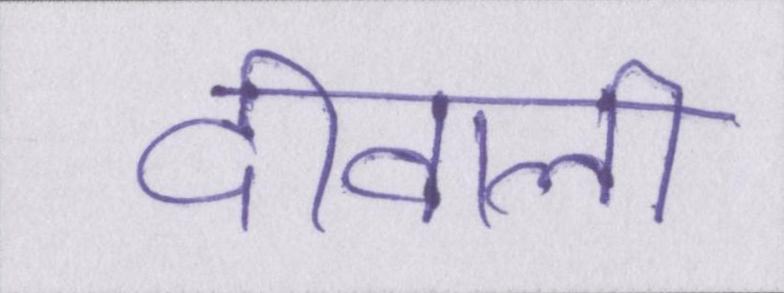 दीवाली